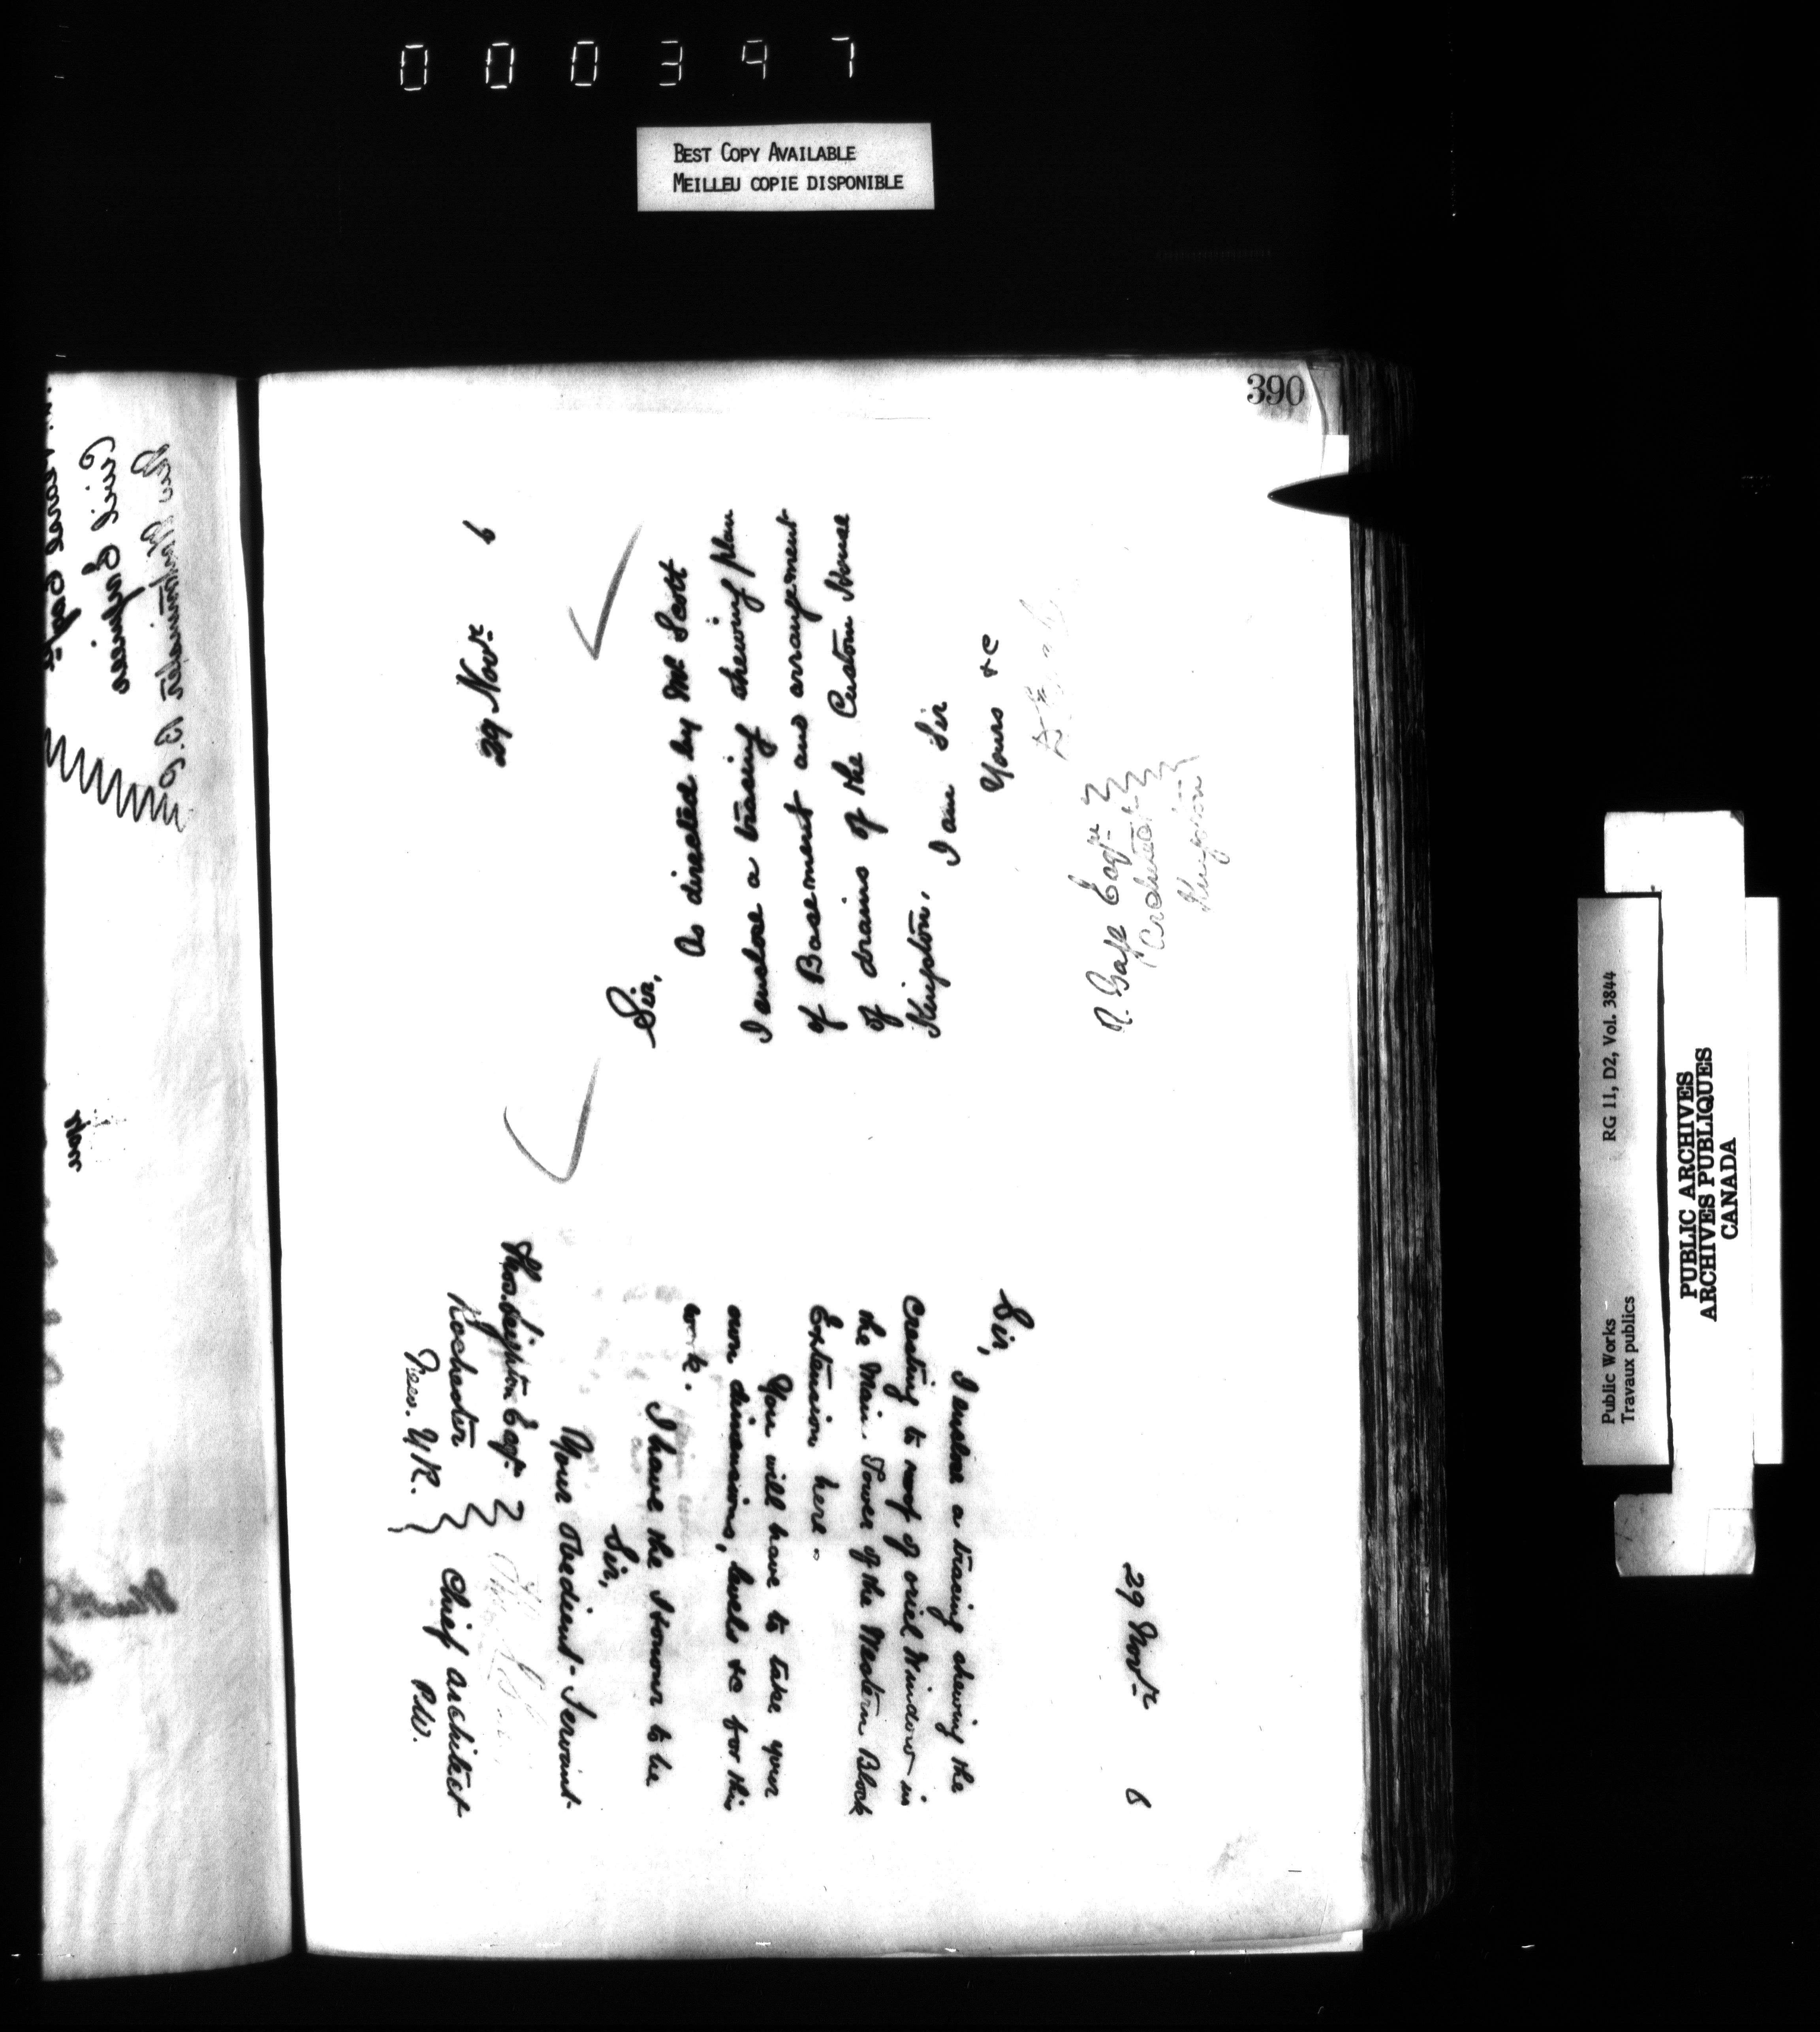 000347
BEST COPY AVAILABLE
MEILLEU COPIE DISPONIBLE
390
29 Novr 6
Sir,
As directed by Mr Scott
I enclose a tracing shewing plan
of Basement and arrangement
of drains of the Custom House
Kingston,
I am Sir
Yours &c
R. Gage Esqre
Architect
Kingston
29 Novr 6
Sir,
I enclose a tracing shewing the
Cresting to roof of oriel Window in
the Main Tower of the Western Block
Extension here.
You will have to take your
own dimensions, levels &c for this
work.
I have the Honour to be
Sir,
Your Obedient Servant
Thos. Leighton Esqr.
Rochester
Chief Architect
P.W.
Civil Engineer
RG 11, D2, Vol. 3844
Public Works
Travaux publics
PUBLIC ARCHIVES
ARCHIVES PUBLIQUES
CANADA